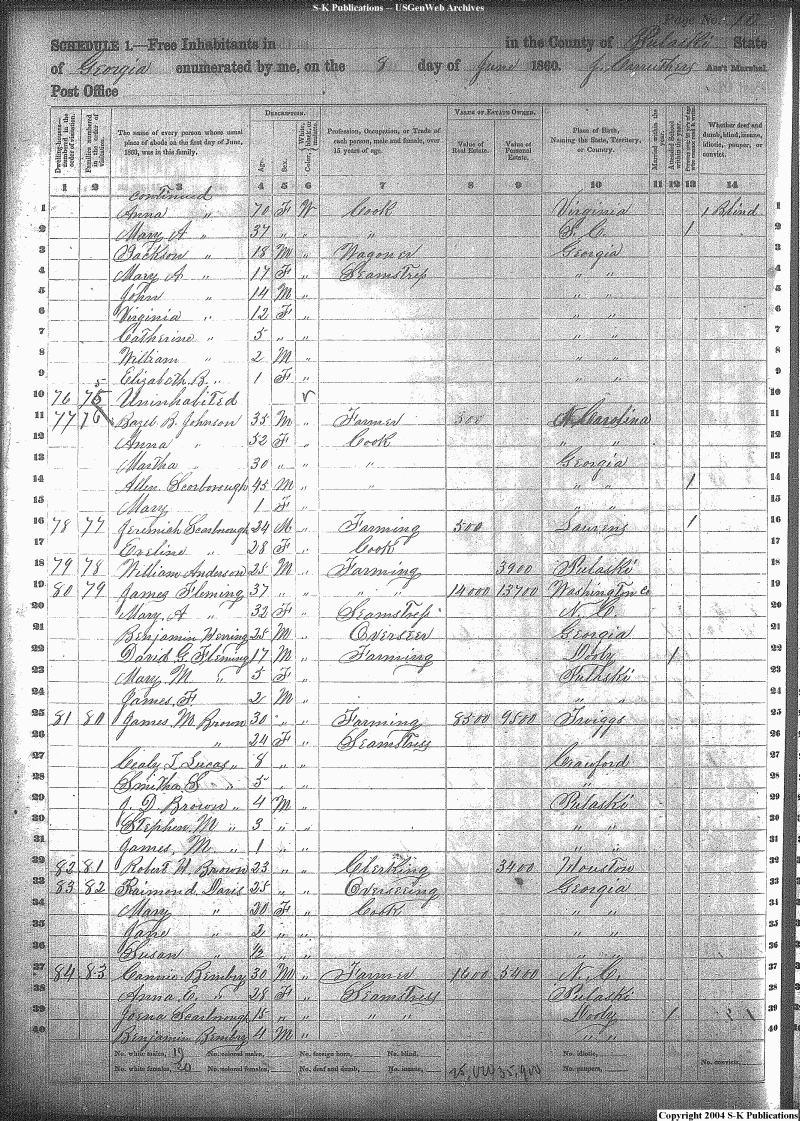 S-K Publications -- USGenWeb Archives
Page No. 10
SCHEDULE 1.—Free Inhabitants in in the County of Pulaski State
of Georgia enumerated by me, on the 8 day of June 1860. Ass't Marshal.
Post Office
DESCRIPTION. VALUE OF ESTATE OWNED.
Dwelling-houses—numbered in the order of visitation. Families numbered in the order of visitation. The name of every person whose usual place of abode on the first day of June, 1860, was in this family. Age. Sex. Color, Profession, Occupation, or Trade of each person, male and female, over 15 years of age. Value of Real Estate. Value of Personal Estate. Place of Birth, Naming the State, Territory, or Country. Married within the year. Attended School within the year. Whether deaf and dumb, blind, insane, idiotic, pauper, or convict.
1 2 3 4 5 6 7 8 9 10 11 12 13 14
continued
1 Anna " 70 F W Cook Virginia Blind 1
2 Mary A " 37 " " " S. C. 1 2
3 Jackson " 18 M " Wagoner Georgia 3
4 Mary A " 17 F " Seamstress " " 4
5 John " 14 M " " " 5
6 Virginia " 12 F " " " 6
7 Catherine " 5 " " " " 7
8 William " 2 M " " " 8
9 Elizabeth B. " 1 F " " " 9
10 76 75 Uninhabited 10
11 77 76 Bazel B. Johnson 35 M " Farmer 500 N. Carolina 11
12 Anna " 52 F " Cook " " 12
13 Martha " 30 " " " Georgia 13
14 Allen Scorborough 45 M " " " " 1 14
15 Mary 1 F " " " 15
16 78 77 Jerimiah Scarbnough 24 M " Farming 500 Laurens 1 16
17 Eveline " 28 F " Cook 17
18 79 78 William Anderson 25 M " Farming 3900 Pulaski 18
19 80 79 James Fleming 37 " " " " 14000 13700 Washington Co 19
20 Mary. A " 32 F " Seamstress N. C. 20
21 Benjamin Herring 28 M " Overseer Georgia 21
22 David G. Fleming 17 M " Farming Dooly 1 22
23 Mary M " 5 F " Pulaski 23
24 James, F 2 M " " " 24
25 81 80 James M. Brown 30 " " Farming 8500 9500 Twiggs 25
26 " 24 F " Seamstress 26
27 Cealy L Lucas " 8 " Crawford 27
28 Smitha S " 5 " " " 28
29 J. D. Brown " 4 M " Pulaski 29
30 Stephen. M " 3 " " " " 30
31 James, M " 1 " " " " 31
32 82 81 Robert W. Brown 23 " " Clerking 3400 Houston 32
33 83 82 Raimond Davis 25 " " Overseeing Georgia 33
34 Mary " 20 F " Cook " " 34
35 Jane " 2 " " " " 35
36 Susan " 1/2 " " " " 36
37 84 83 Cannie Bembry 30 M " Farmer 1600 5400 N. C. 37
38 Anna C. " 28 F " Seamstress Pulaski 38
39 Scarborough 15 " " " Dooly 1 39
40 Benjamin Bembry 4 M " " " 40
No. white males, 19 No. colored males, No. foreign born, No. blind, No. idiotic,
No. white females, 20 No. colored females, No. deaf and dumb, No. insane, 35,900 No. paupers, No. convicts,
Copyright 2004 S-K Publications